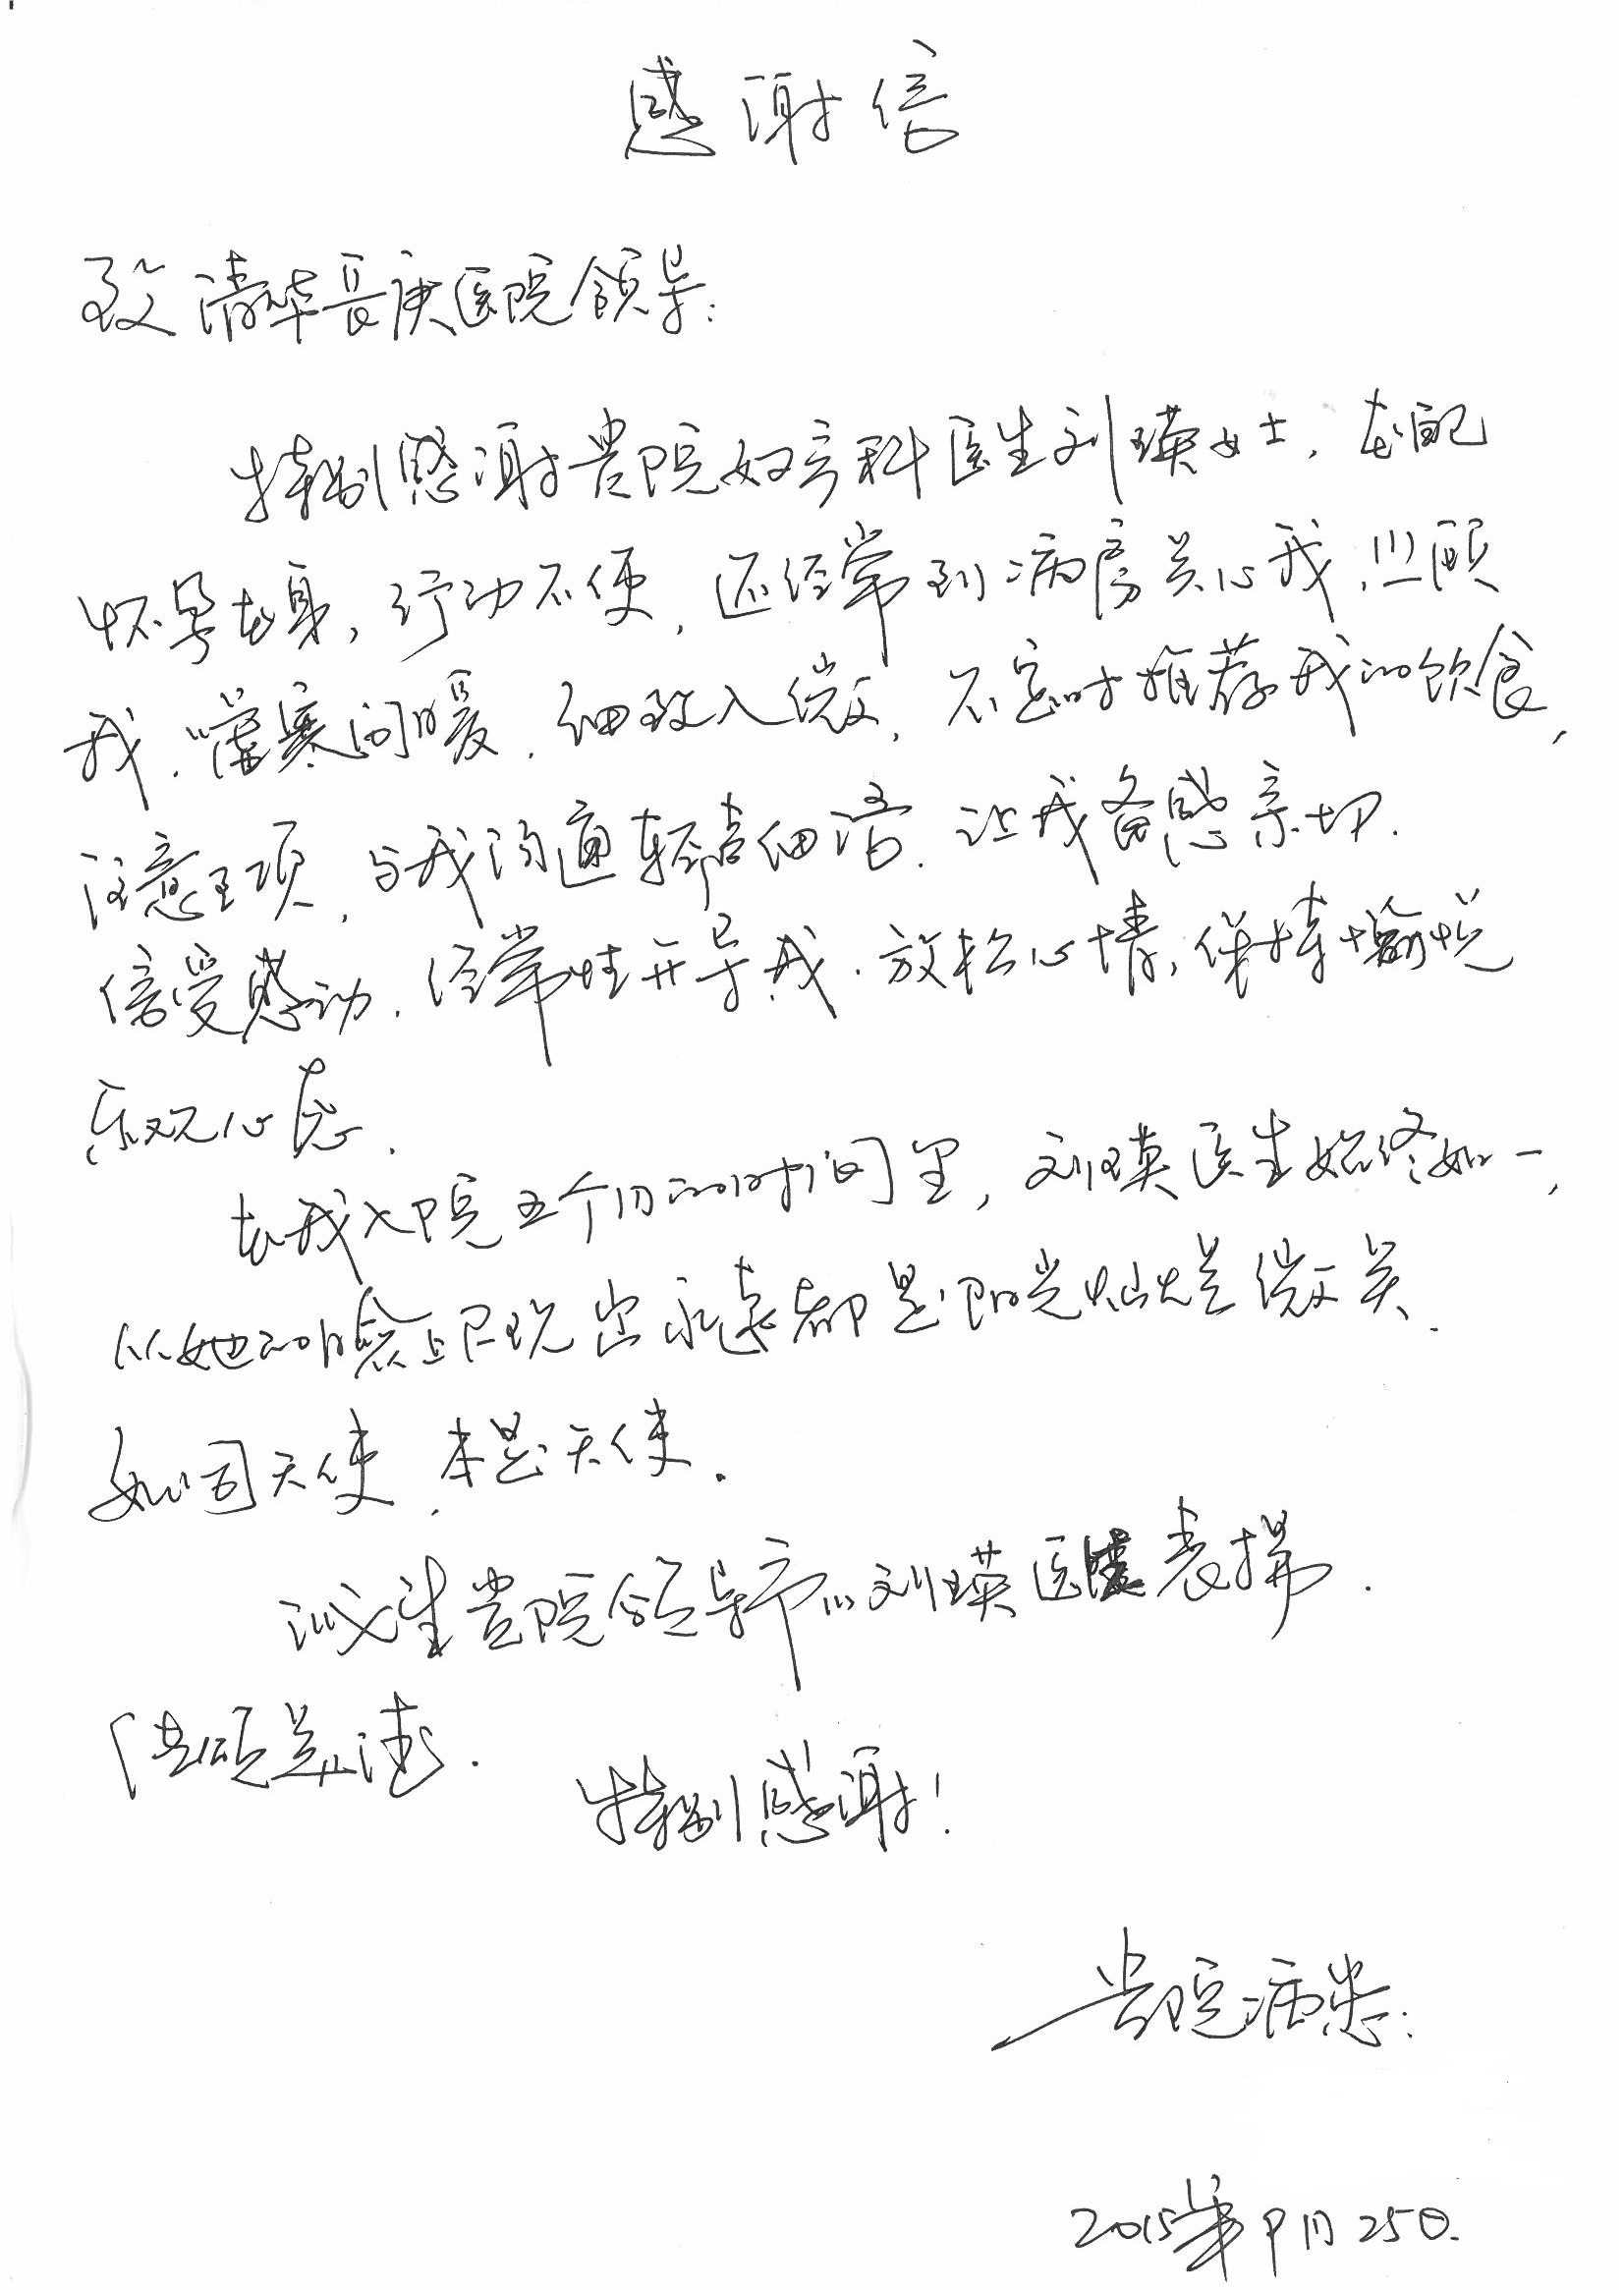 感谢信
致清华长庚医院领导:
特别感谢贵院妇产科医生刘瑛女士,在自己
怀孕在身,行动不便,还经常到病房关心我,照顾
我,嘘寒问暖,细致入微,不定时推荐我的饮食,
注意事项,与我沟通轻声细语,让我备感亲切.
倍受感动,经常性开导我,放松心情,保持愉悦
乐观心态.
在我入院五个月的时间里,刘瑛医生始终如一,
从她的脸上反映出永远都是阳光灿烂微笑.
如同天使,本是天使.
诚望贵院领导予以刘瑛医生表扬.
特别感谢!
贵院病患:
2015年9月25日.